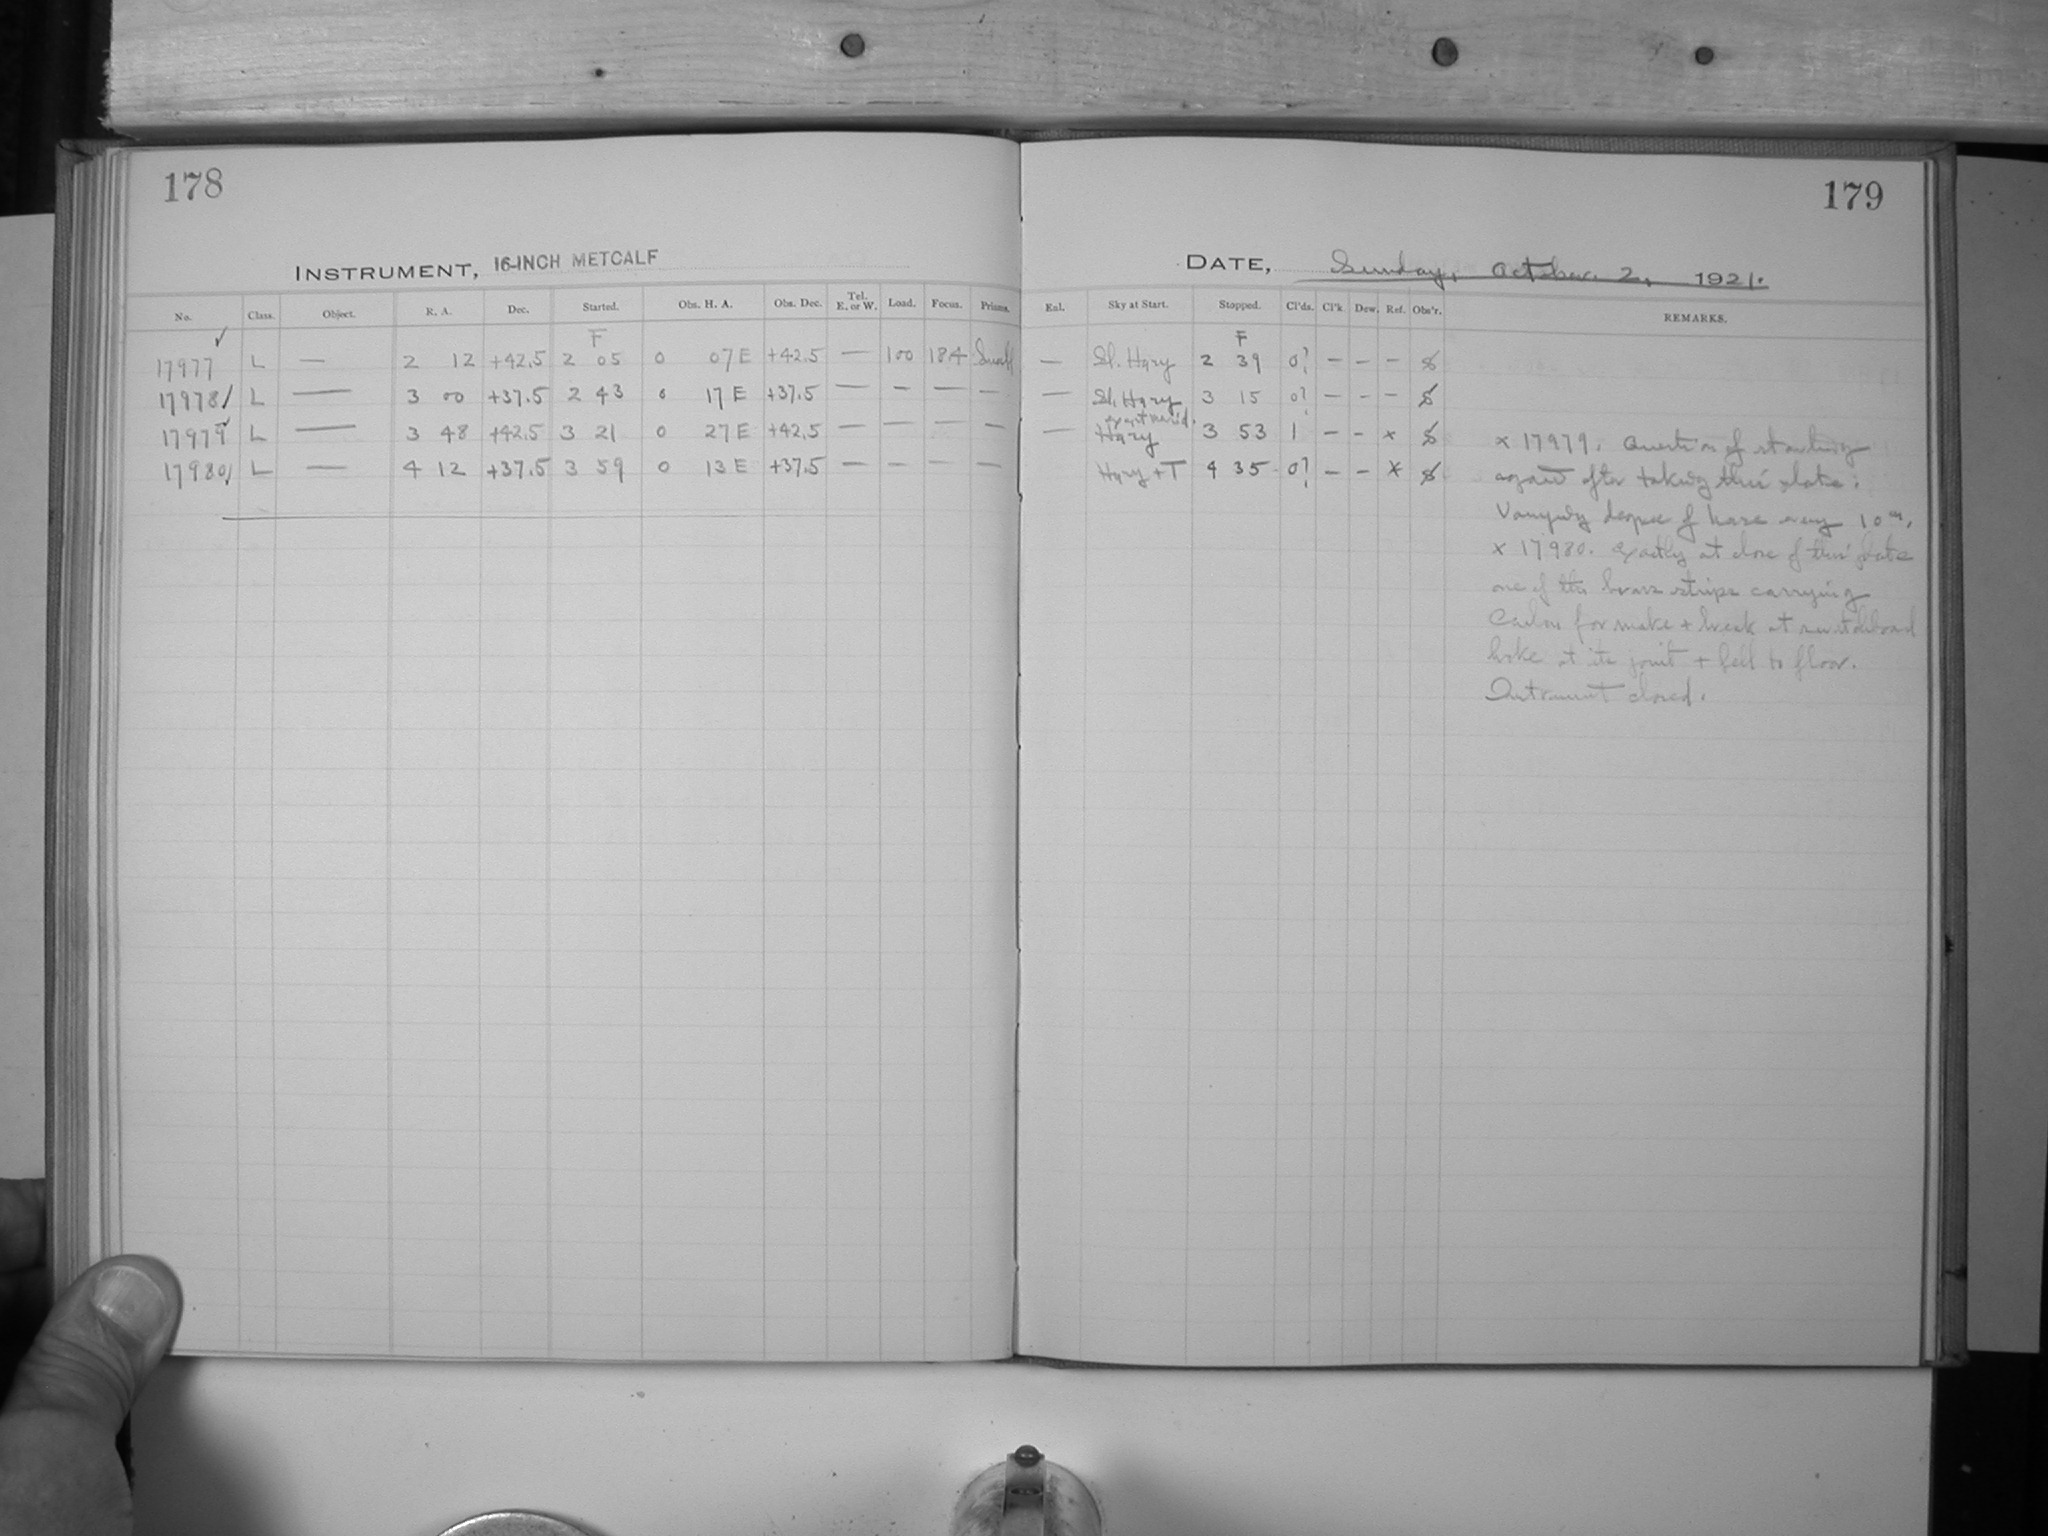 178
INSTRUMENT, 16-INCH METCALF
No. Class. Object. R. A. Dec. Started. Obs. H. A. Obs. Dec. Tel. E. or W. Load. Focus. Prisms.
F
17977 ✓ L — 2 12 +42.5 2 05 0 07 E +42.5 — 100 18.4 Small
17978/ L — 3 00 +37.5 2 43 0 17 E +37.5 — — — —
17979 ✓ L — 3 48 +42.5 3 21 0 27 E +42.5 — — — —
17980/ L — 4 12 +37.5 3 59 0 13 E +37.5 — — — —
179
DATE, Sunday, October 2, 1921.
Enl. Sky at Start. Stopped. Cl'ds. Cl'k Dew. Ref. Obs'r. REMARKS.
F
— Sl. Hazy 2 39 0? — — —
— Sl. Hazy 3 15 0? — — —
— Hazy 3 53 1 — — x
Hazy + T 4 35 0? — — x
x 17979. Question of starting
again after taking this plate:
Varying degree of haze every 10m.
x 17980. Exactly at close of this plate
one of the brass strips carrying
Carbon for make + break at switchboard
broke at its joint + fell to floor.
Instrument closed.